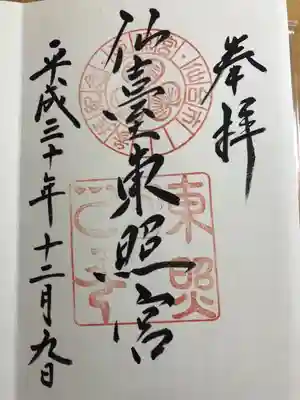 奉拝
仙臺東照宮
東照
平成三十年十二月九日